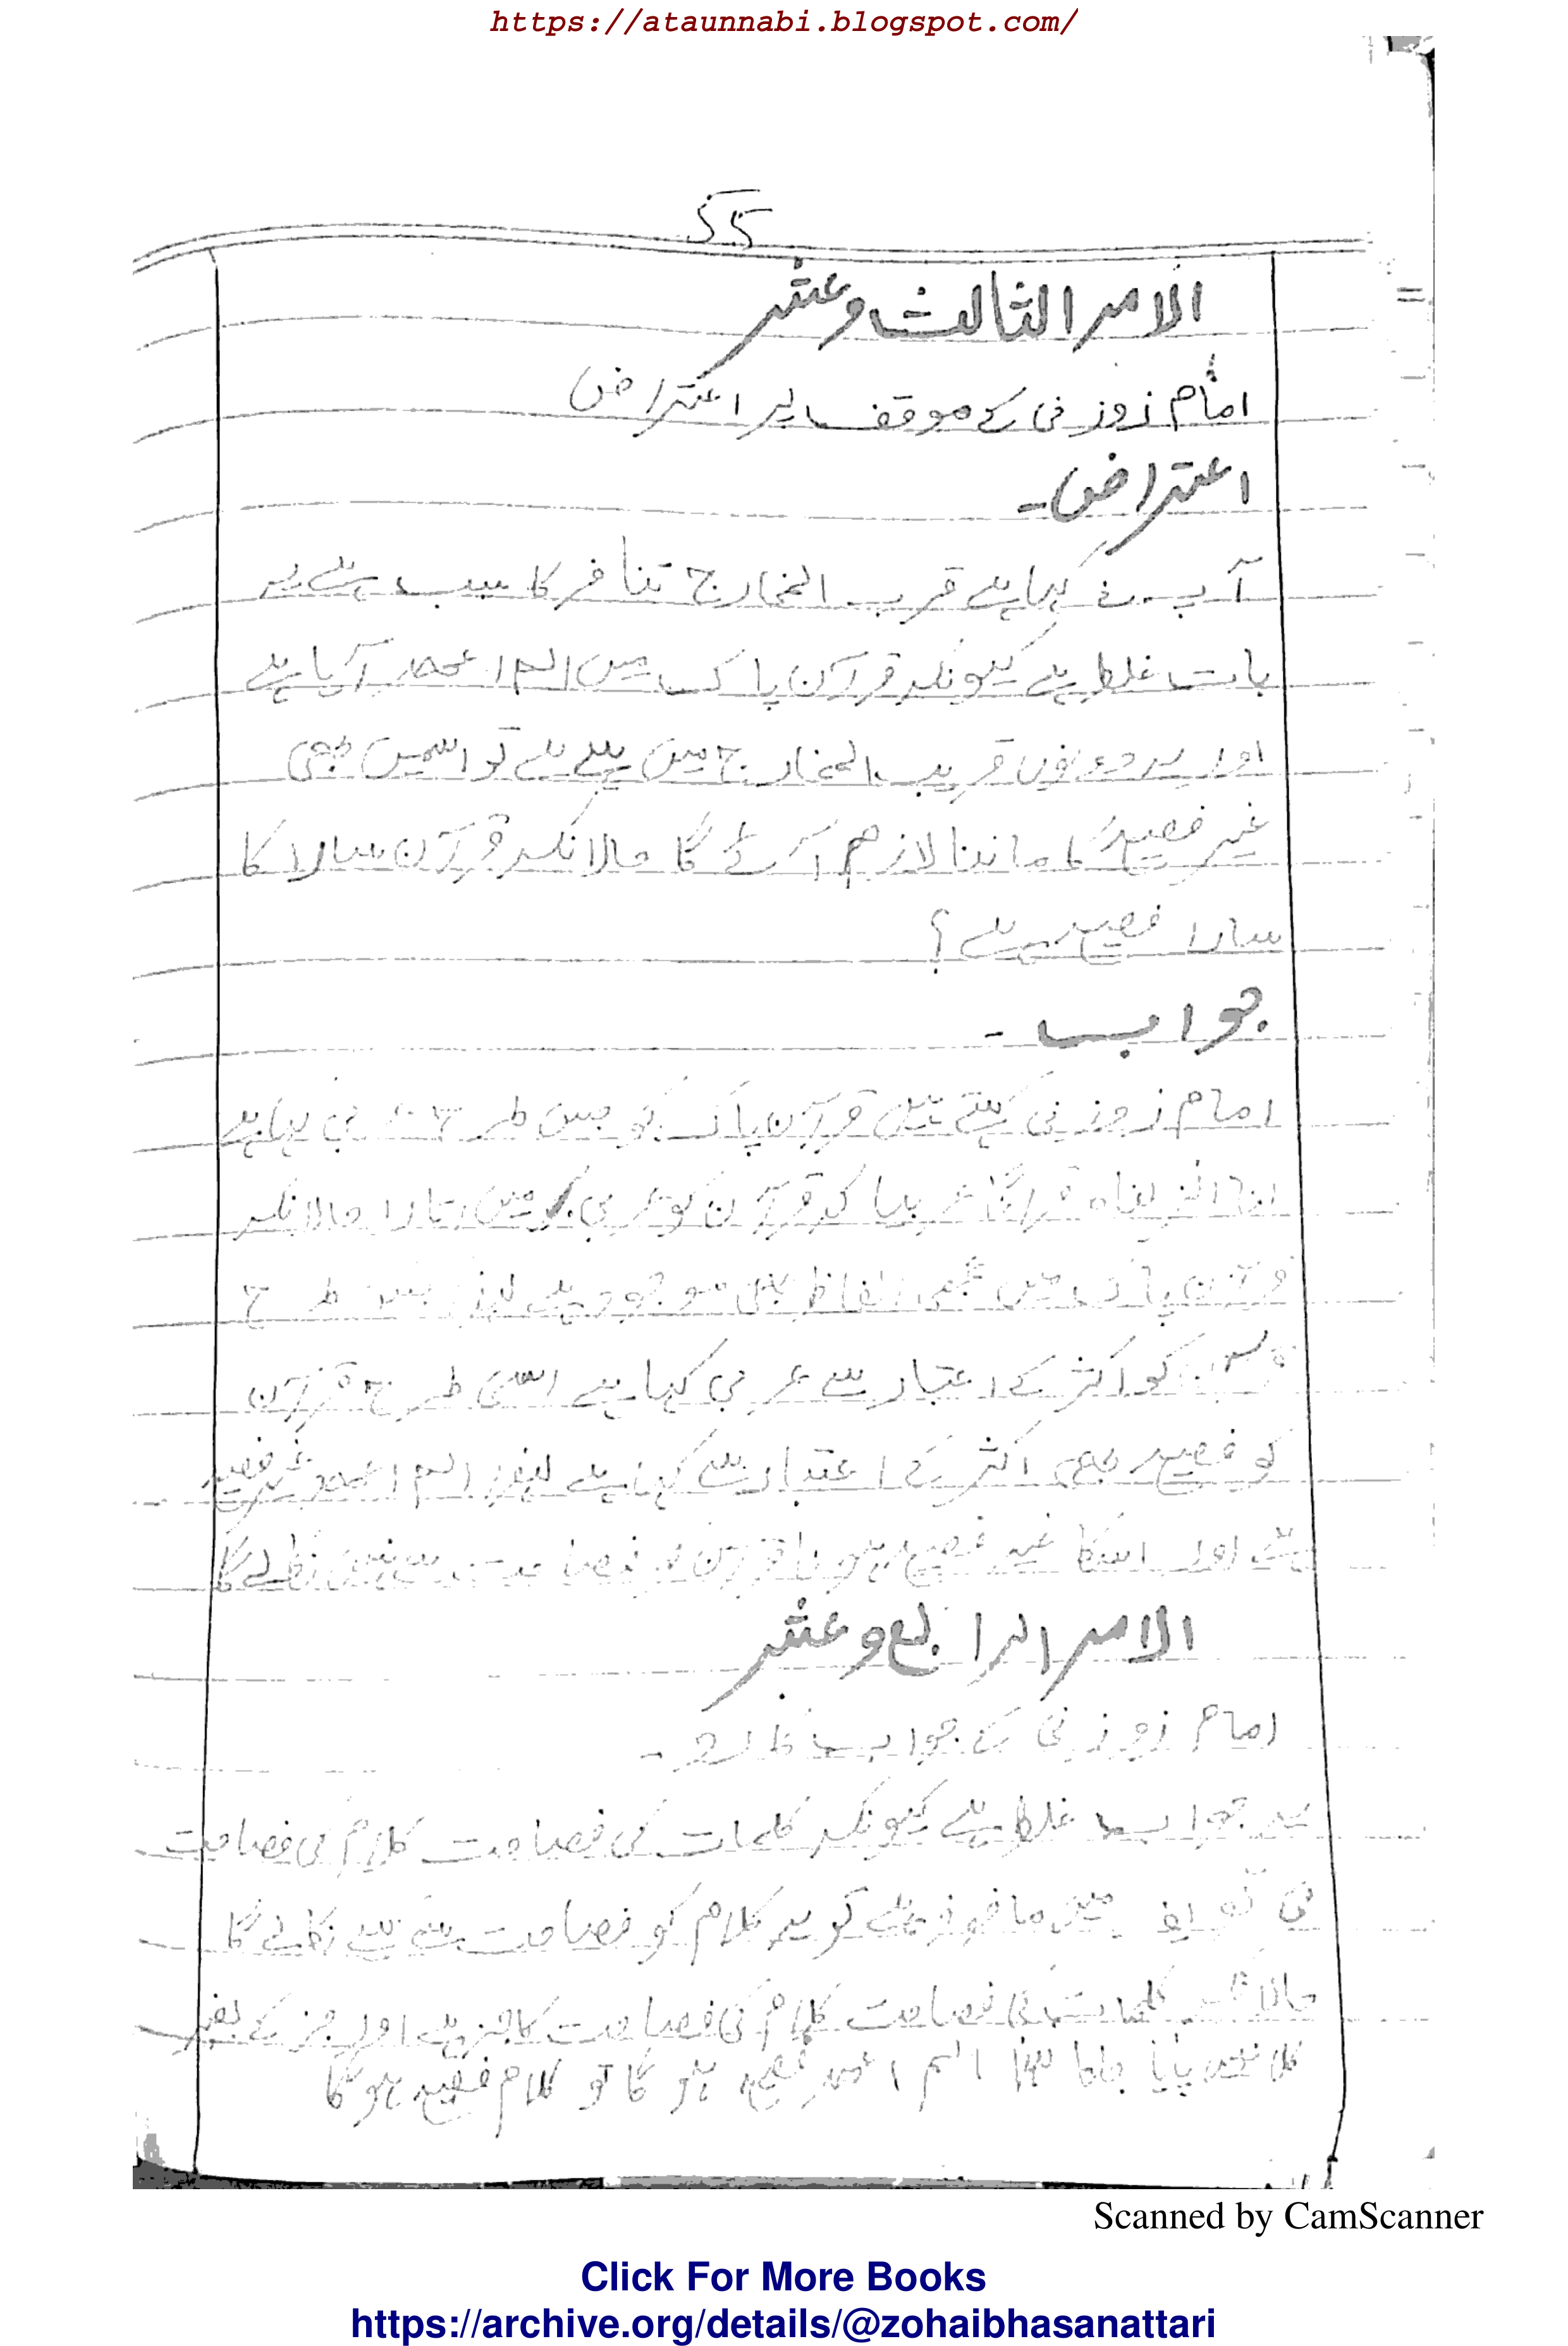 https://ataunnabi.blogspot.com/
55
الامر الثالث وعشر
امام زوزنی کے موقف پر اعتراض
اعتراض۔
آپ نے کہا ہے قرب المخارج تنافر کا سبب ہے یہ
بات غلط ہے کیونکہ قرآن پاک میں الم اعھد آیا ہے
اور یہ دونوں قریب المخارج میں سے ہے تو اسمیں بھی
غیر فصیح کا ماننا لازم آئے گا حالانکہ قرآن سارا کا
سارا فصیح ہے؟
جواب ۔
امام زوزنی کہتے ہیں قرآن پاک کو جس طرح عربی کہا ہے
انا انزلناہ قرانا عربیا کہ قرآن کو عربی میں اتارا حالانکہ
قرآن پاک میں عجمی الفاظ بھی موجود ہے لہذا جس طرح
قرآن کو اکثر کے اعتبار سے عربی کہا ہے اسی طرح قرآن
کو فصیح بھی اکثر کے اعتبار سے کہا ہے لہذا الم اعھد غیر فصیح
ہے اور اسکا غیر فصیح ہونا قرآن کو فصاحت سے نہیں نکالے گا
الامر الرابع وعشر
امام زوزنی کے جواب کا رد ۔
یہ جواب غلط ہے کیونکہ کلمات کی فصاحت کلام کی فصاحت
کی تعریف میں ماخوذ ہے تو یہ کلام کو فصاحت سے نکالے گا
حالانکہ کلمات کی فصاحت کلام کی فصاحت کا جز ہے اور جز کے بغیر
کل نہیں پایا جاتا لہذا الم اعھد فصیح ہو گا تو کلام فصیح ہو گا
Scanned by CamScanner
Click For More Books
https://archive.org/details/@zohaibhasanattari